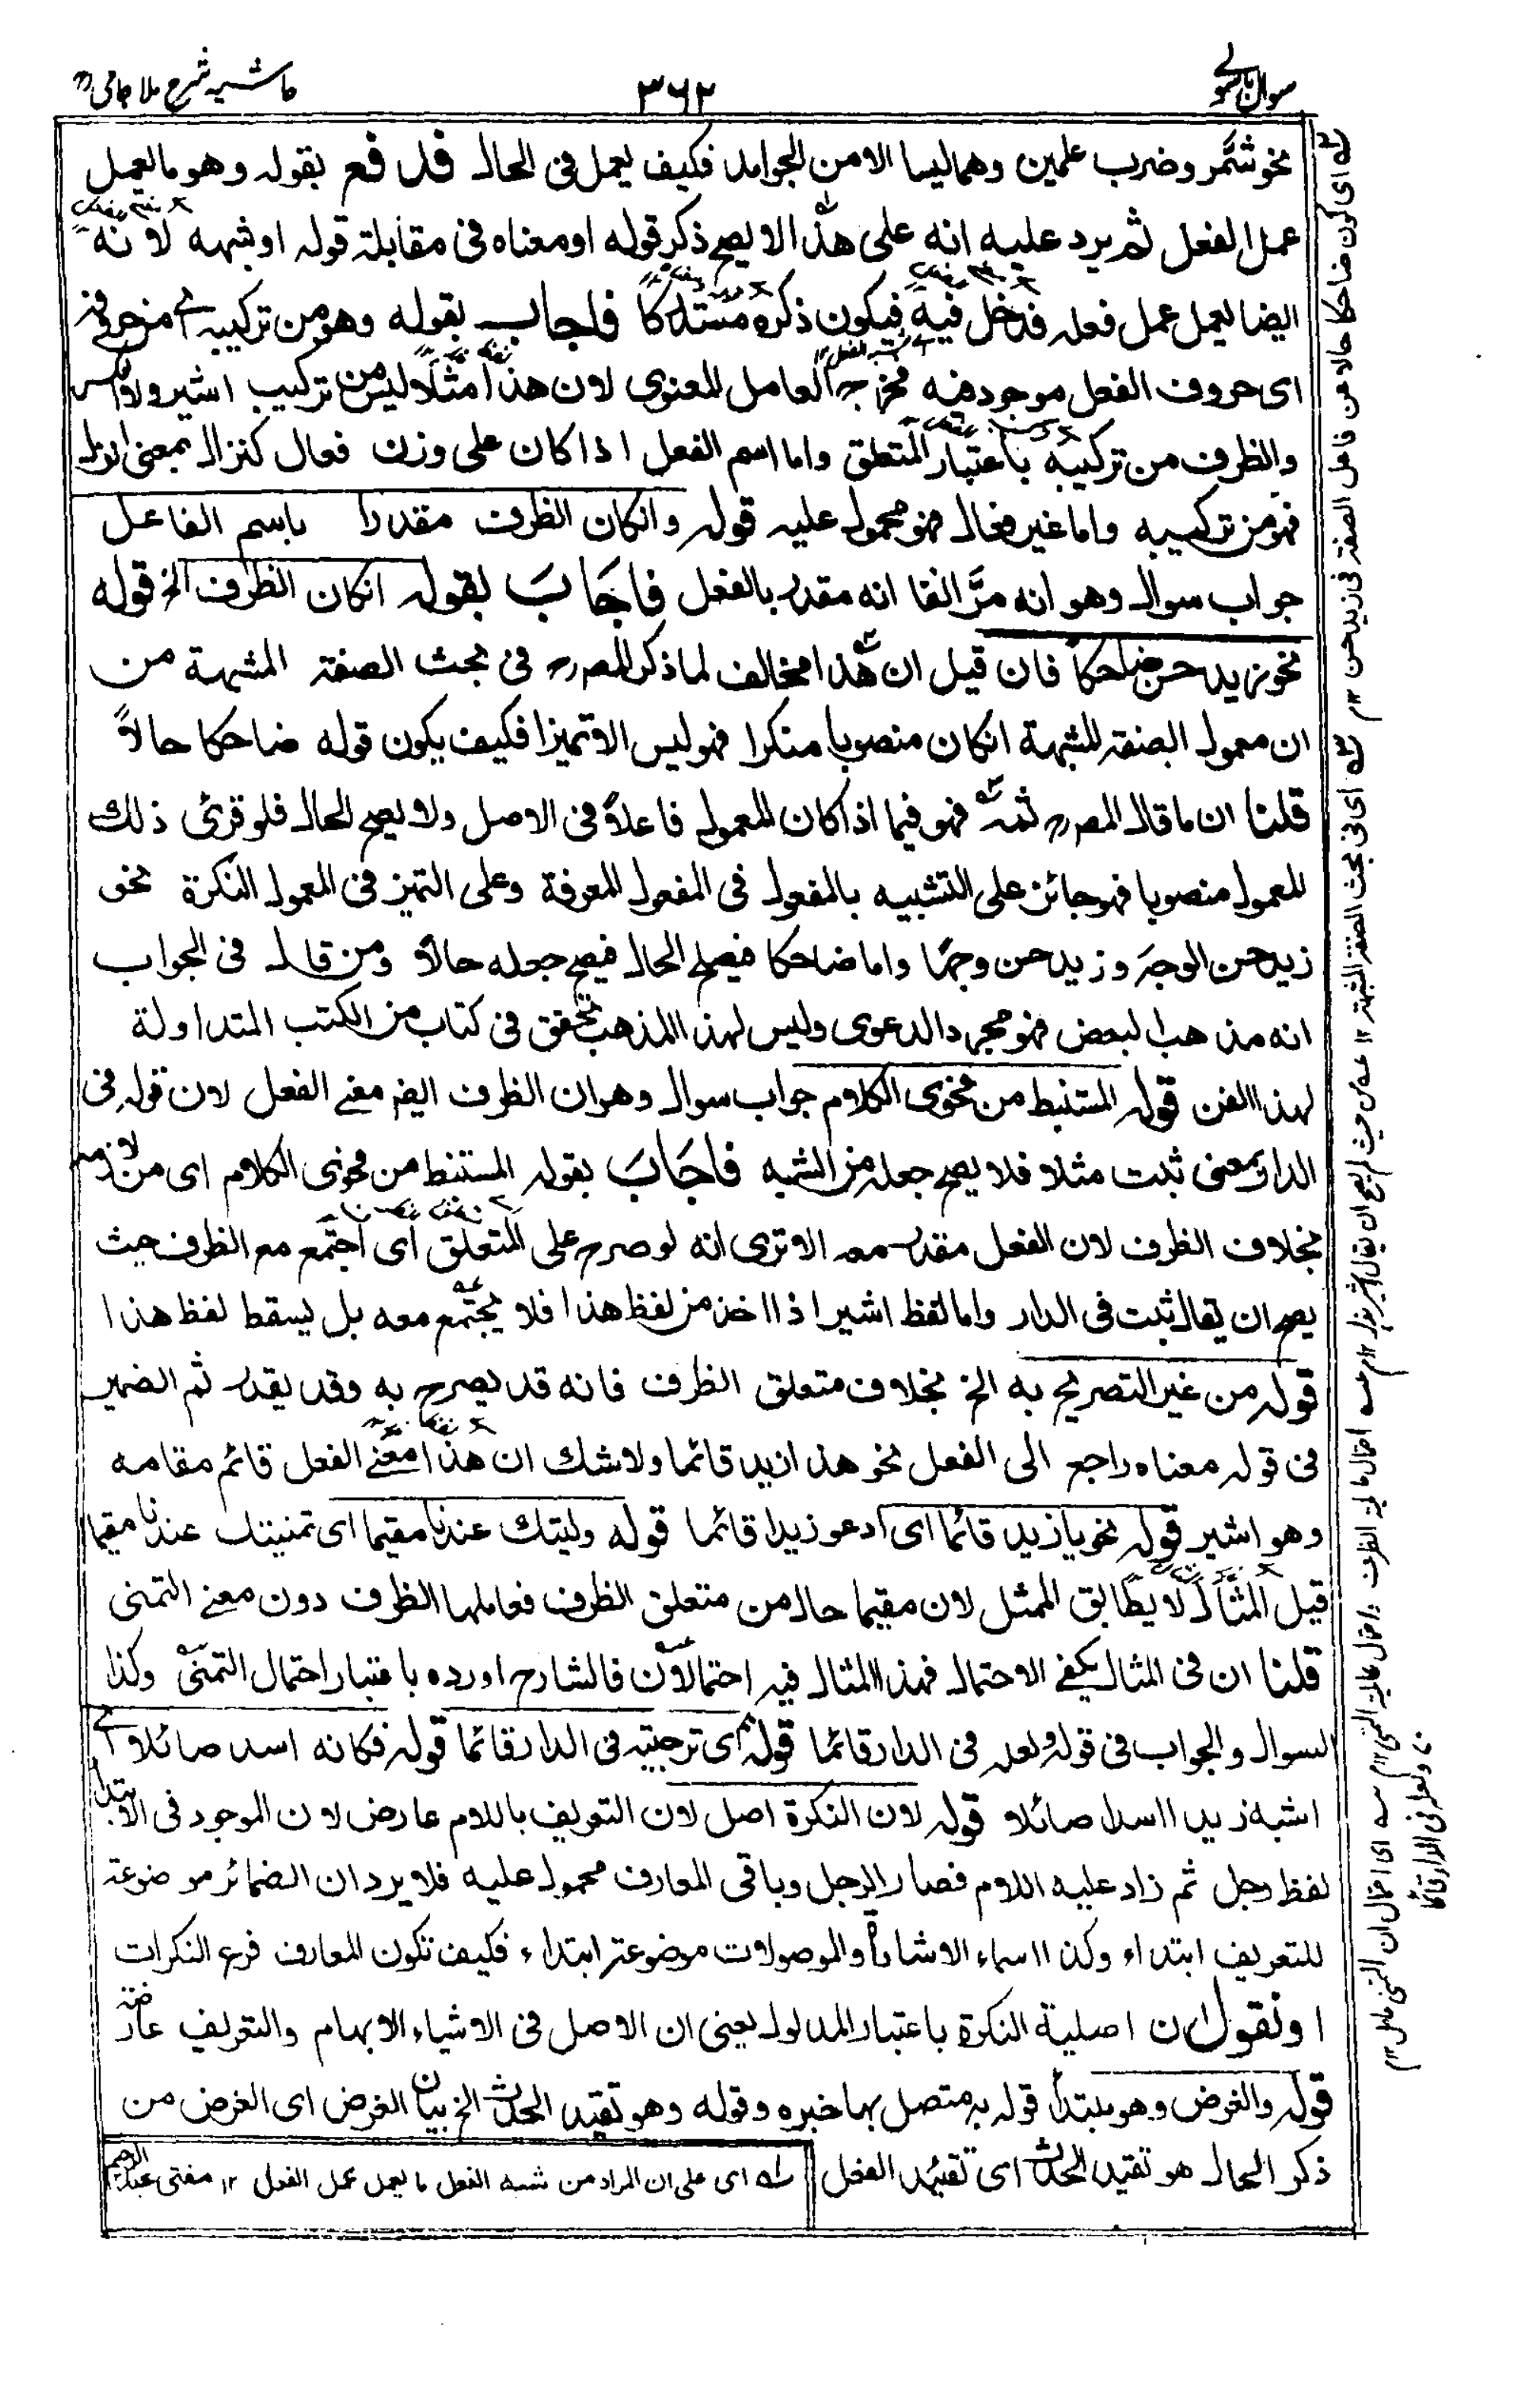 سوال باسولی
٣٦٢
حاشیه شرح ملا جامی
نحو شمّر وضرب علمين وهما ليسا الا من الجوامد فكيف يعمل فى الحال فدفع بقوله وهو ما يعمل
عمل الفعل ثم يرد عليه انه على هذا لا يصح ذكر قوله او معناه فى مقابلة قوله او شبهه لانه
ايضا يعمل عمل فعله فدخل فيه فيكون ذكره مستدركا فاجاب بقوله وهو من تركيبه اى من حروفه
اى حروف الفعل موجود فيه فخرج به العامل المعنوى لان هذا مثلا ليس من تركيب اشير ولا
والظرف من تركيبه باعتبار المتعلق واما اسم الفعل اذا كان على وزن فعال كنزال بمعنى انزل
فهو من تركيبه واما غير فعال فهو محمول عليه قوله وان كان الظرف مقدرا باسم الفاعل
جواب سوال وهو انه مرّ انفا انه مقدر بالفعل فاجَابَ بقوله ان كان الظرف الخ قوله
نحو زيد حسن ضاحكا فان قيل ان هذا مخالف لما ذكر المصرح فى بحث الصفة المشبهة من
ان معمول الصفة المشبهة ان كان منصوبا منكرا فهو ليس الا تميزا فكيف يكون قوله ضاحكا حالاً
قلنا ان ما قال المصرح ثمه فهو فيما اذا كان المعمول فاعلاً فى الاصل ولا يصح الحال فلو قرئ ذلك
المعمول منصوبا فهو جائز على التشبيه بالمفعول فى المفعول المعرفة وعلى التميز فى المعمول النكرة نحو
زيد حسن الوجه وزيد حسن وجها واما ضاحكا فيصلح الحال فيصح جعله حالاً ومن قال فى الجواب
انه مذهب البعض فهو مجرد الدعوى وليس لهذا المذهب تحقق فى كتاب من الكتب المتداولة
لهذا الفن قوله المستنبط من فحوى الكلام جواب سوال وهو ان الظرف ايضا معنى الفعل لان قوله فى
الدار بمعنى ثبت مثلا فلا يصح جعله من الشبه فاجَابَ بقوله المستنبط من فحوى الكلام اى من لازمه
بخلاف الظرف لان الفعل مقدر معه الا ترى انه لو صرح على المتعلق اى اجتمع مع الظرف حيث
يصح ان يقال ثبت فى الدار واما لفظ اشير اذا اخذ من لفظ هذا فلا يجتمع معه بل يسقط لفظ هذا
قوله من غير التصريح به الخ بخلاف متعلق الظرف فانه قد يصرح به وقد يقدر ثم الضمير
فى قوله معناه راجع الى الفعل نحو هذا زيد قائما ولا شك ان هذا معنى الفعل قائم مقامه
وهو اشير قوله نحو يا زيد قائما اى ادعو زيدا قائما قوله وليتك عندنا مقيما اى تمنيتك عندنا مقيما
قيل المثال لا يطابق الممثل لان مقيما حال من متعلق الظرف فعاملها الظرف دون معنى التمنى
قلنا ان فى المثال يكفى الاحتمال فهذا المثال فيه احتمالان فالشارح اورده باعتبار احتمال التمنى وكذا
السوال والجواب فى قوله ولعله فى الدار قائما قوله اى ترجيته فى الدار قائما قوله فكانه اسد صائلا اى
اشبه زيدا اسدا صائلا قوله لان النكرة اصل لان التعريف باللام عارض لان الموجود فى الابتداء
لفظ رجل ثم زاد عليه اللام فصار الرجل وباقى المعارف محمول عليه فلا يرد ان الضمائر موضوعة
للتعريف ابتداء وكذا اسماء الاشارة والموصولات موضوعة ابتداء فكيف تكون المعارف فرع النكرات
او نقول ان اصلية النكرة باعتبار المدلول يعنى ان الاصل فى الاشياء الابهام والتعريف عارضة
قوله والغرض وهو مبتدأ قوله به متصل بها خبره وقوله وهو تقييد الحدث الخ بيان الغرض اى الغرض من
ذكر الحال هو تقييد الحدث اى تقييد الفعل
له اى على ان المراد من شبه الفعل ما يعمل عمل الفعل ١٢ مفتى عبد الرحيم
اى كون ضاحكا حالا عن فاعل الصفة فى زيد حسن ١٢م اى فى بحث الصفة المشبهة ١٢ حيث لم يصح ان يقال اشير زيد ١٢م احتمال عاملية الظرف واحتمال عاملية التمنى ١٢م اى احتمال ان التمنى عامل ١٢م
ولعله فى الدار قائما